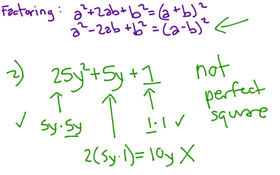 Factoring: a²+2ab+b²=(a+b)²
a²-2ab+b²=(a-b)²
2) 25y²+5y+1 not
perfect
square
✓ 5y·5y 1·1 ✓
2(5y·1)=10y X